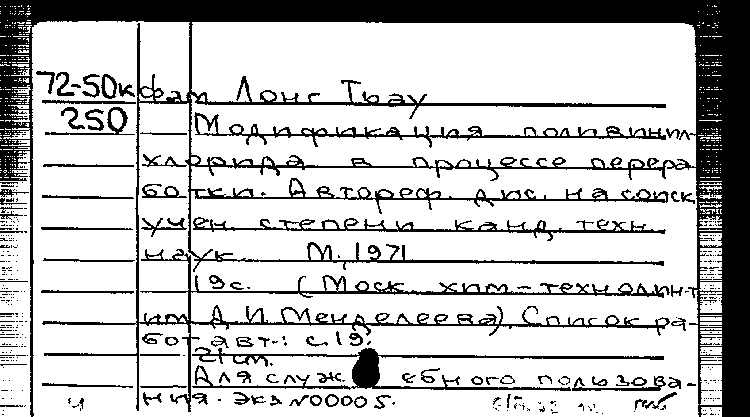 72-50к Фам Лонг Тхау
250 Модификация поливинил-
хлорида в процессе перера
ботки. Автореф. дис. на соиск
учен. степени канд. техн.
наук М., 1971
19с. (Моск. хим-технол. ин-т
им Д. И. Менделеева). Список ра-
бот авт.: с. 19.
21 см.
Для служебного пользова-
ния. Экз N00005.